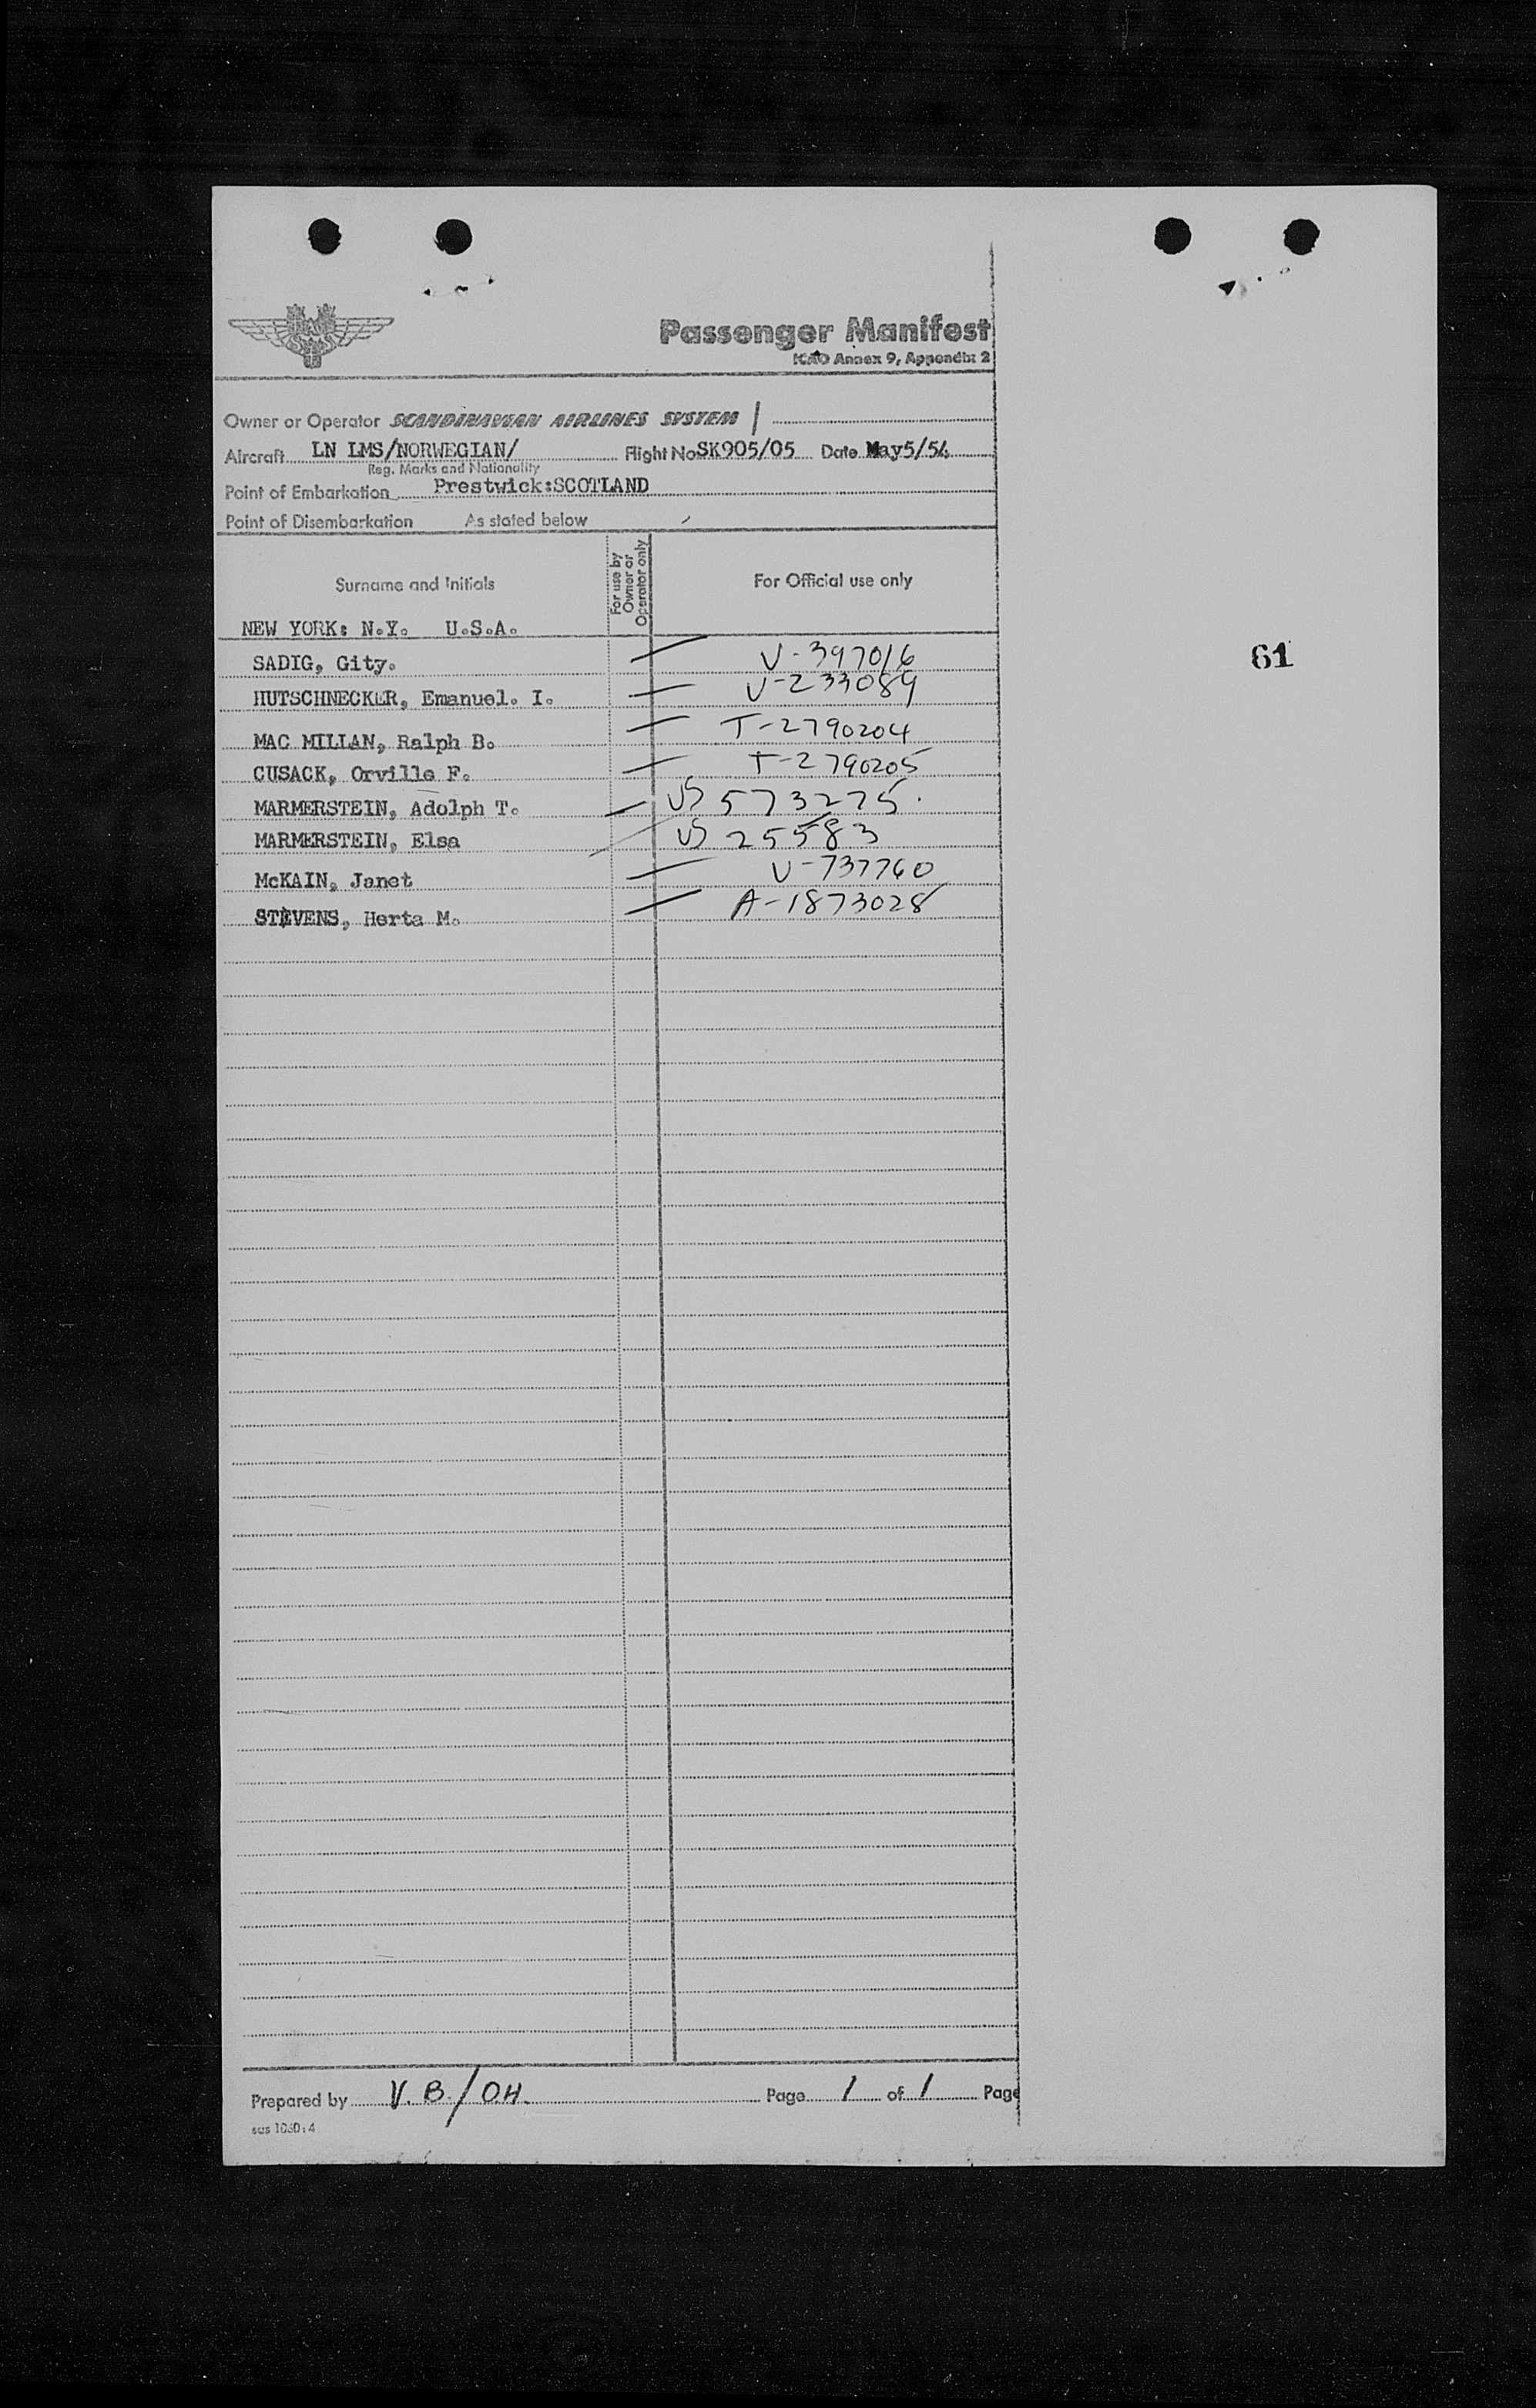 SAS
Passenger Manifest
ICAO Annex 9, Appendix 2
Owner or Operator SCANDINAVIAN AIRLINES SYSTEM /
Aircraft LN LMS/NORWEGIAN/ Flight No SK905/05 Date May5/54
Reg. Marks and Nationality
Point of Embarkation Prestwick:SCOTLAND
Point of Disembarkation As stated below
Surname and Initials For use by Owner or Operator only For Official use only
NEW YORK: N.Y. U.S.A.
SADIG, Gity. V-397016
61
HUTSCHNECKER, Emanuel. I. V-233089
MAC MILLAN, Ralph B. T-2790204
CUSACK, Orville F. T-2790205
MARMERSTEIN, Adolph T. US 573275.
MARMERSTEIN, Elsa US 25583
McKAIN, Janet V-737760
STEVENS, Herta M. A-1873028
Prepared by V.B./O.H. Page 1 of 1 Page
sas 1060:4